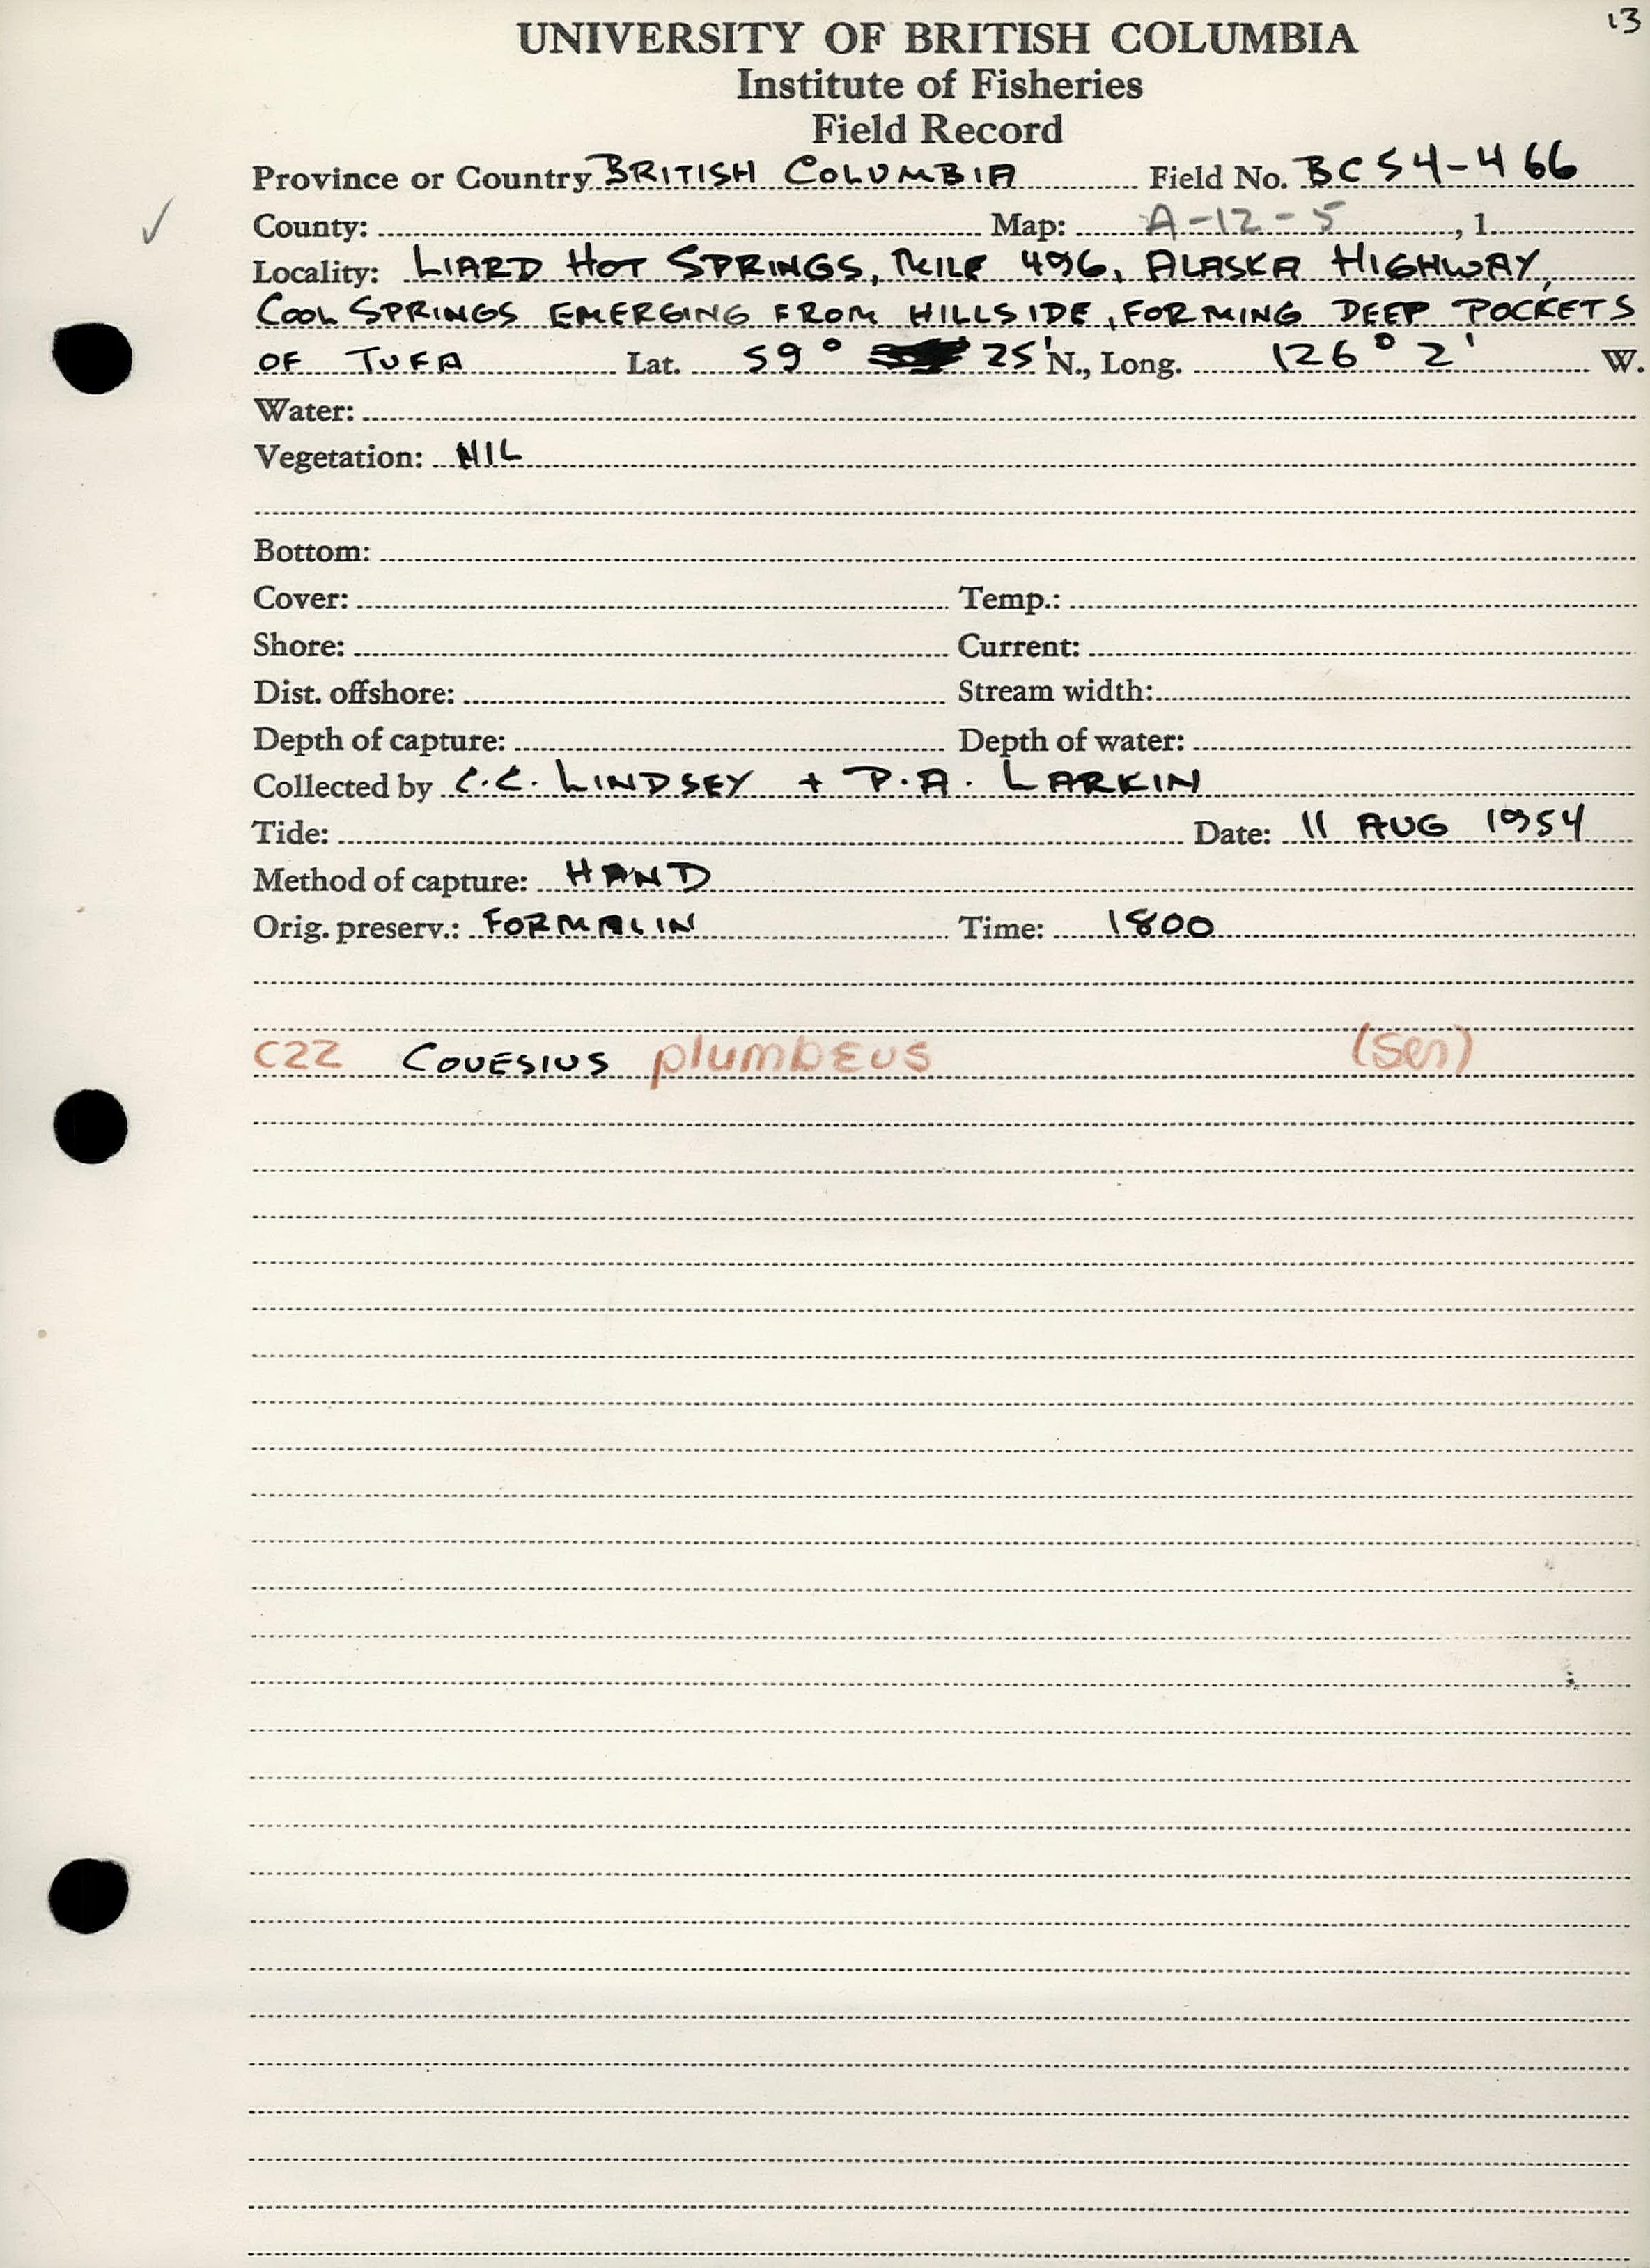 13
UNIVERSITY OF BRITISH COLUMBIA
Institute of Fisheries
Field Record
Province or Country BRITISH COLUMBIA Field No. BC 54-466
✓ County: Map: A-12-5, 1
Locality: LIARD HOT SPRINGS, MILE 496, ALASKA HIGHWAY,
COOL SPRINGS EMERGING FROM HILLSIDE, FORMING DEEP POCKETS
OF TUFA Lat. 59° 25' N., Long. 126° 2' W.
Water:
Vegetation: NIL
Bottom:
Cover: Temp.:
Shore: Current:
Dist. offshore: Stream width:
Depth of capture: Depth of water:
Collected by C.C. LINDSEY + P.A. LARKIN
Tide: Date: 11 AUG 1954
Method of capture: HAND
Orig. preserv.: FORMALIN Time: 1800
C22 COUESIUS plumbeus (Ser)